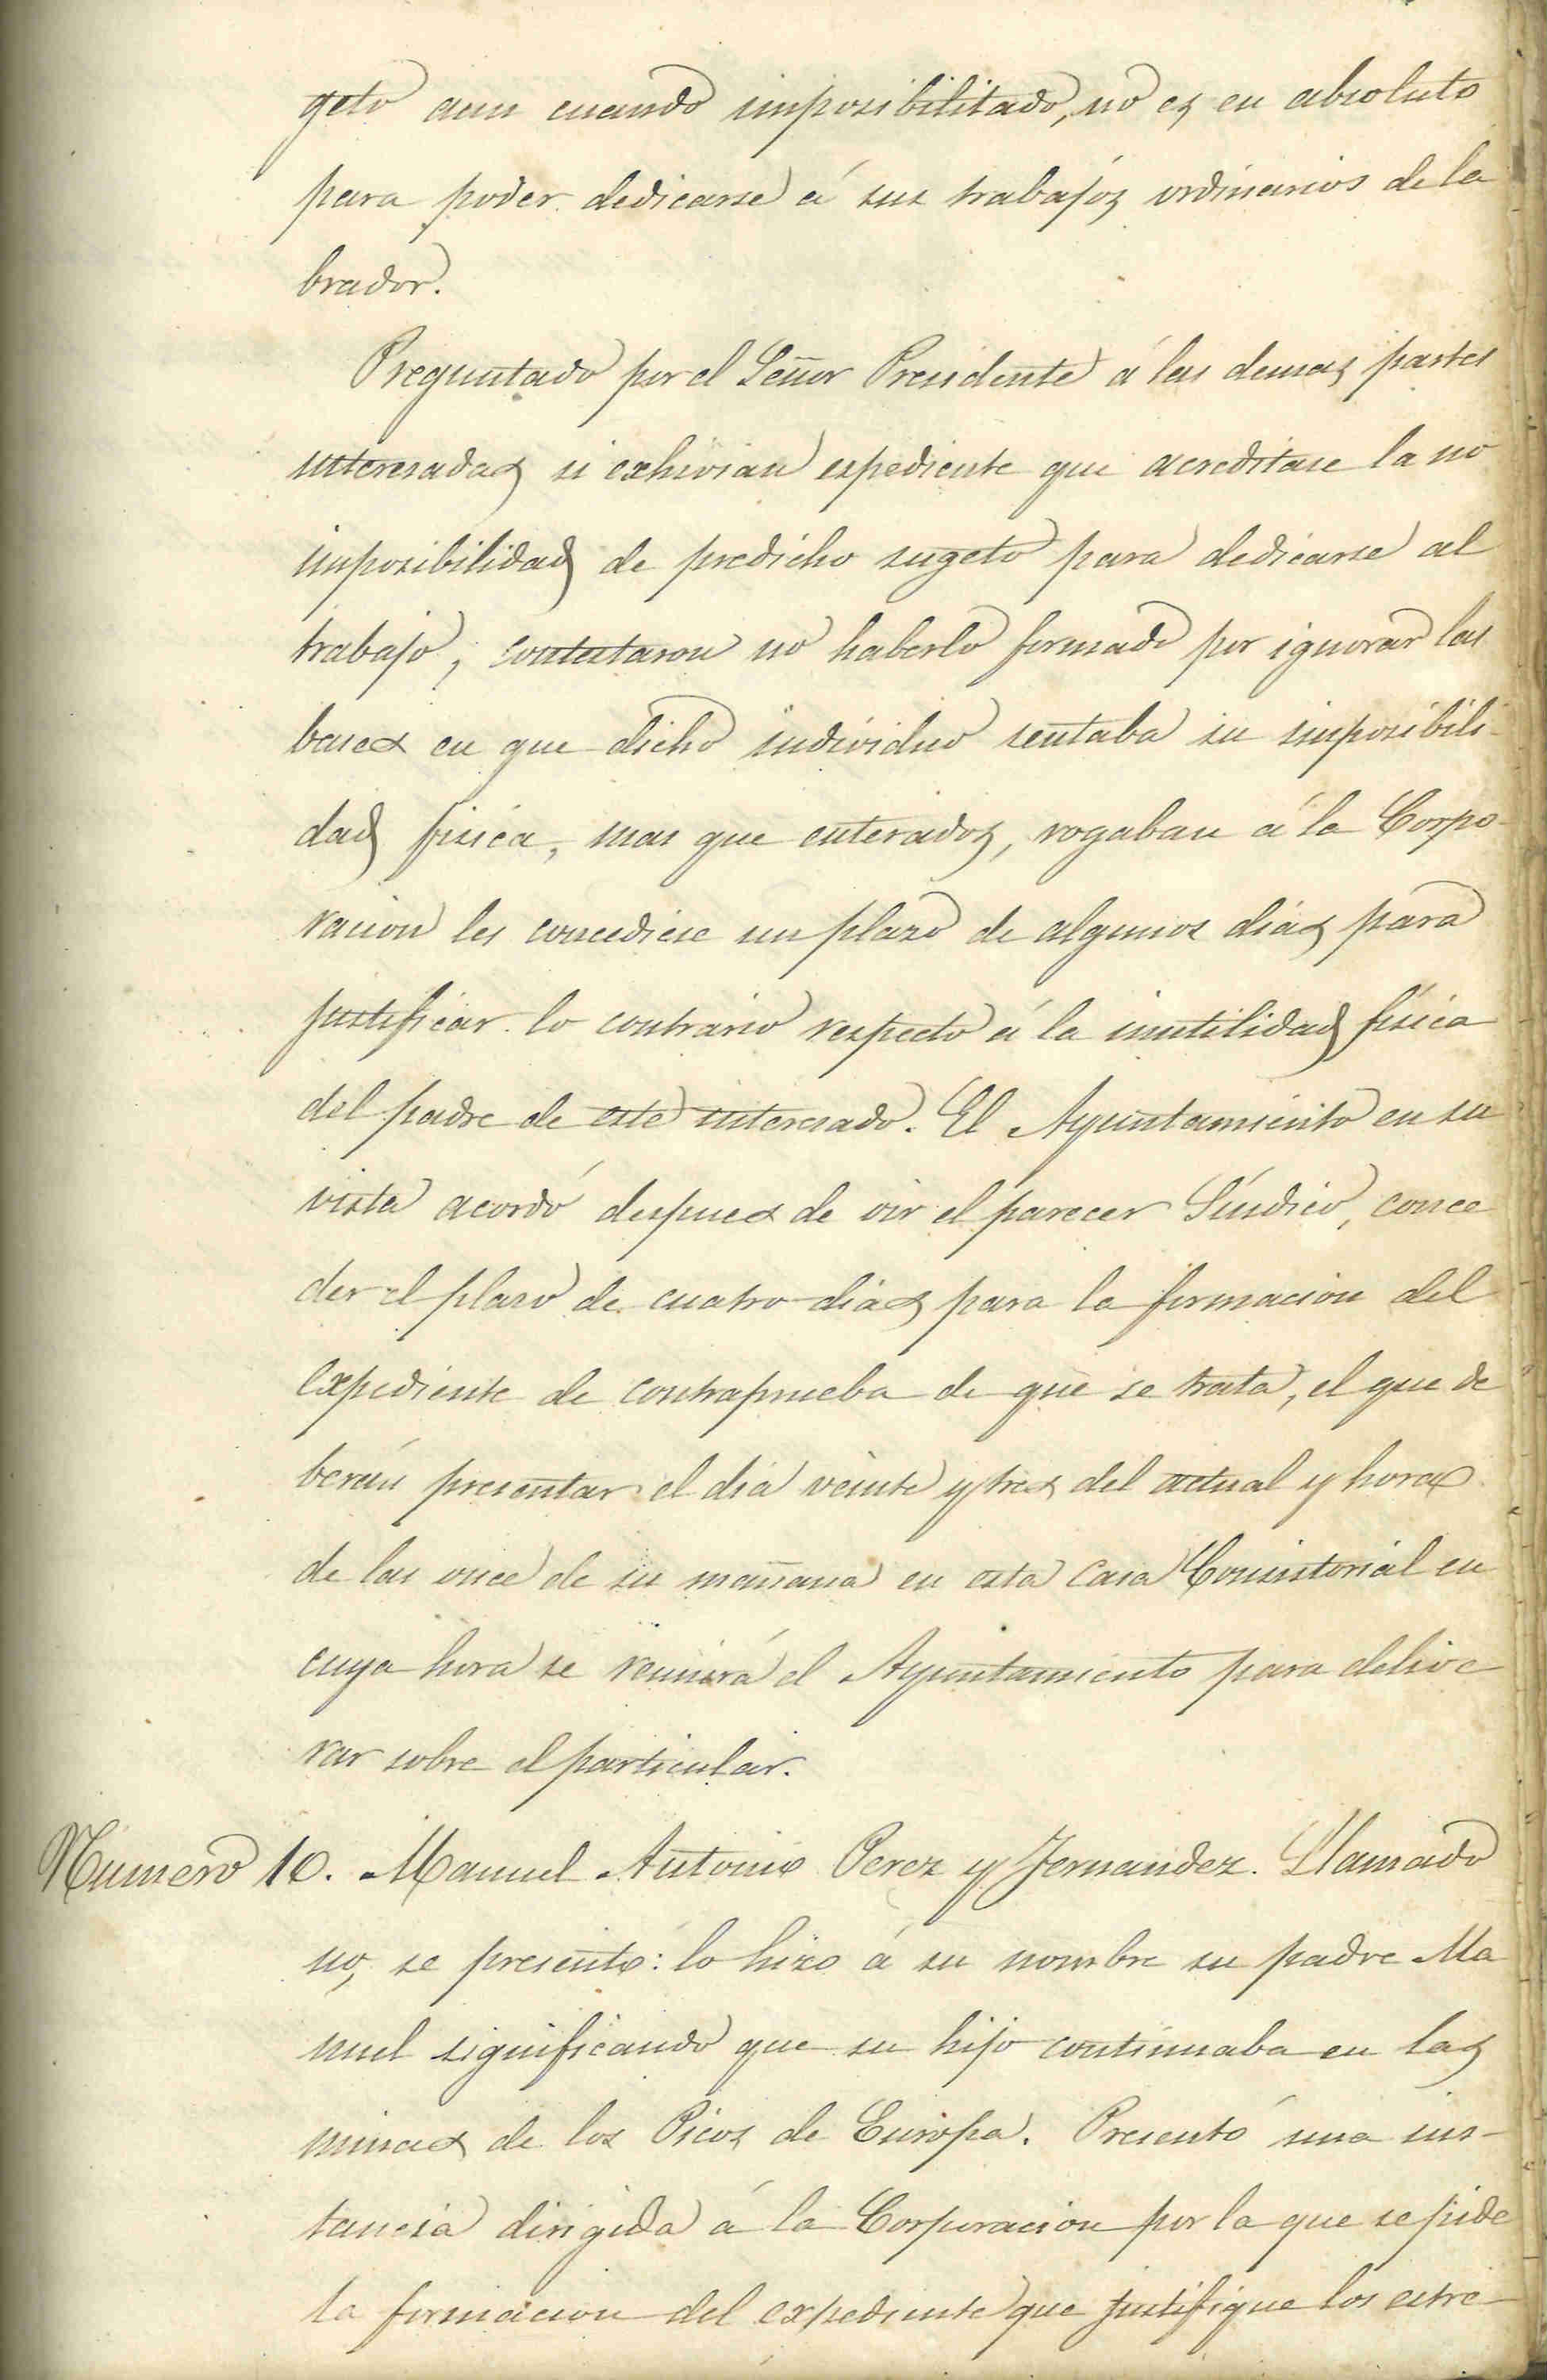 geto aun cuando imposibilitado, no es en absoluto
para poder dedicarse á sus trabajos ordinarios de la
brador.
Preguntado por el Señor Presidente á las demas partes
interesadas si exhivian espediente que acreditase la no
imposibilidad de predicho sugeto para dedicarse al
trabajo, contestaron no haberlo formado por ignorar las
bases en que dicho individuo sentaba su imposibili-
dad fisica, mas que enterados, rogaban á la Corpo-
racion les concediese un plazo de algunos dias para
justificar lo contrario respecto á la inutilidad física
del padre de este interesado. El Ayuntamiento en su
vista acordó despues de oir el parecer Síndico, conce
der el plazo de cuatro dias para la formacion del
expediente de contraprueba de que se trata, el que de
berán presentar el dia veinte y tres del actual y hora
de las once de su mañana en esta Casa Consistorial en
cuya hora se reunirá el Ayuntamiento para delive
rar sobre el particular.
Número 10. Manuel Antonio Perez y Fernandez. Llamado
no, se presentó: lo hizo á su nombre su padre Ma
nuel significando que su hijo continuaba en las
minas de los Picos de Europa. Presentó una ins-
tancia dirigida á la Corporacion por la que se pide
la formacion del expediente que justifique los estre-